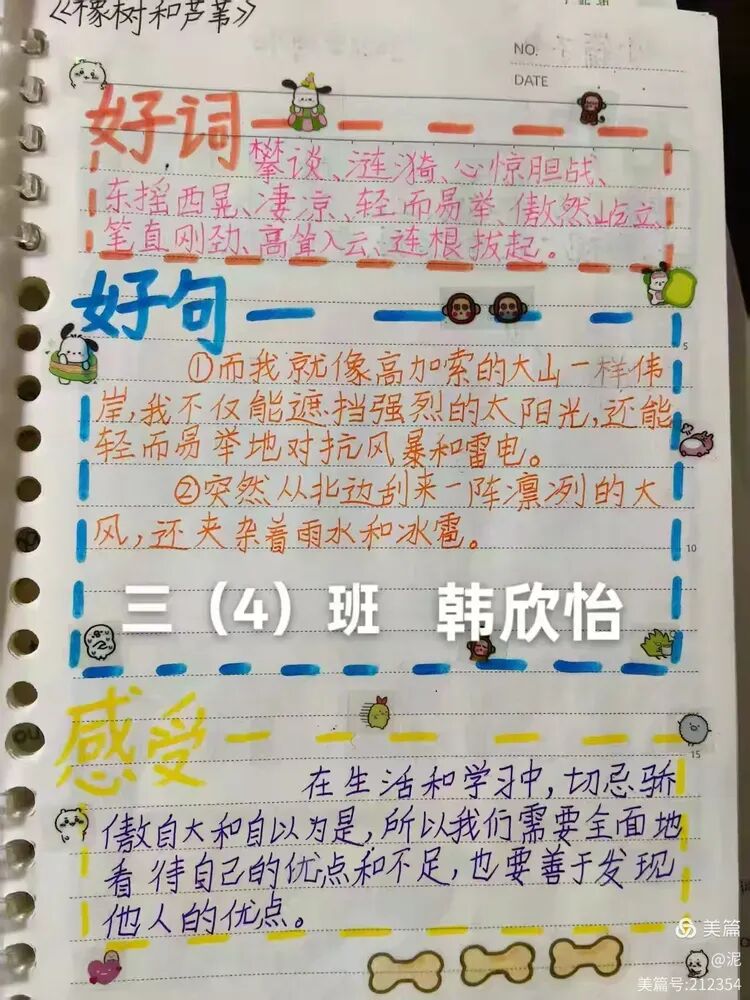 《橡树和芦苇》
NO.
DATE
好词
攀谈、涟漪、心惊胆战、
东摇西晃、凄凉、轻而易举、傲然屹立、
笔直刚劲、高耸入云、连根拔起。
好句
①而我就像高加索的大山一样伟
岸,我不仅能遮挡强烈的太阳光,还能
轻而易举地对抗风暴和雷电。
②突然从北边刮来一阵凛冽的大
风,还夹杂着雨水和冰雹。
5
10
三（4）班 韩欣怡
感受
15
在生活和学习中,切忌骄
傲自大和自以为是,所以我们需要全面地
看待自己的优点和不足,也要善于发现
他人的优点。
美篇
@泥
美篇号:212354